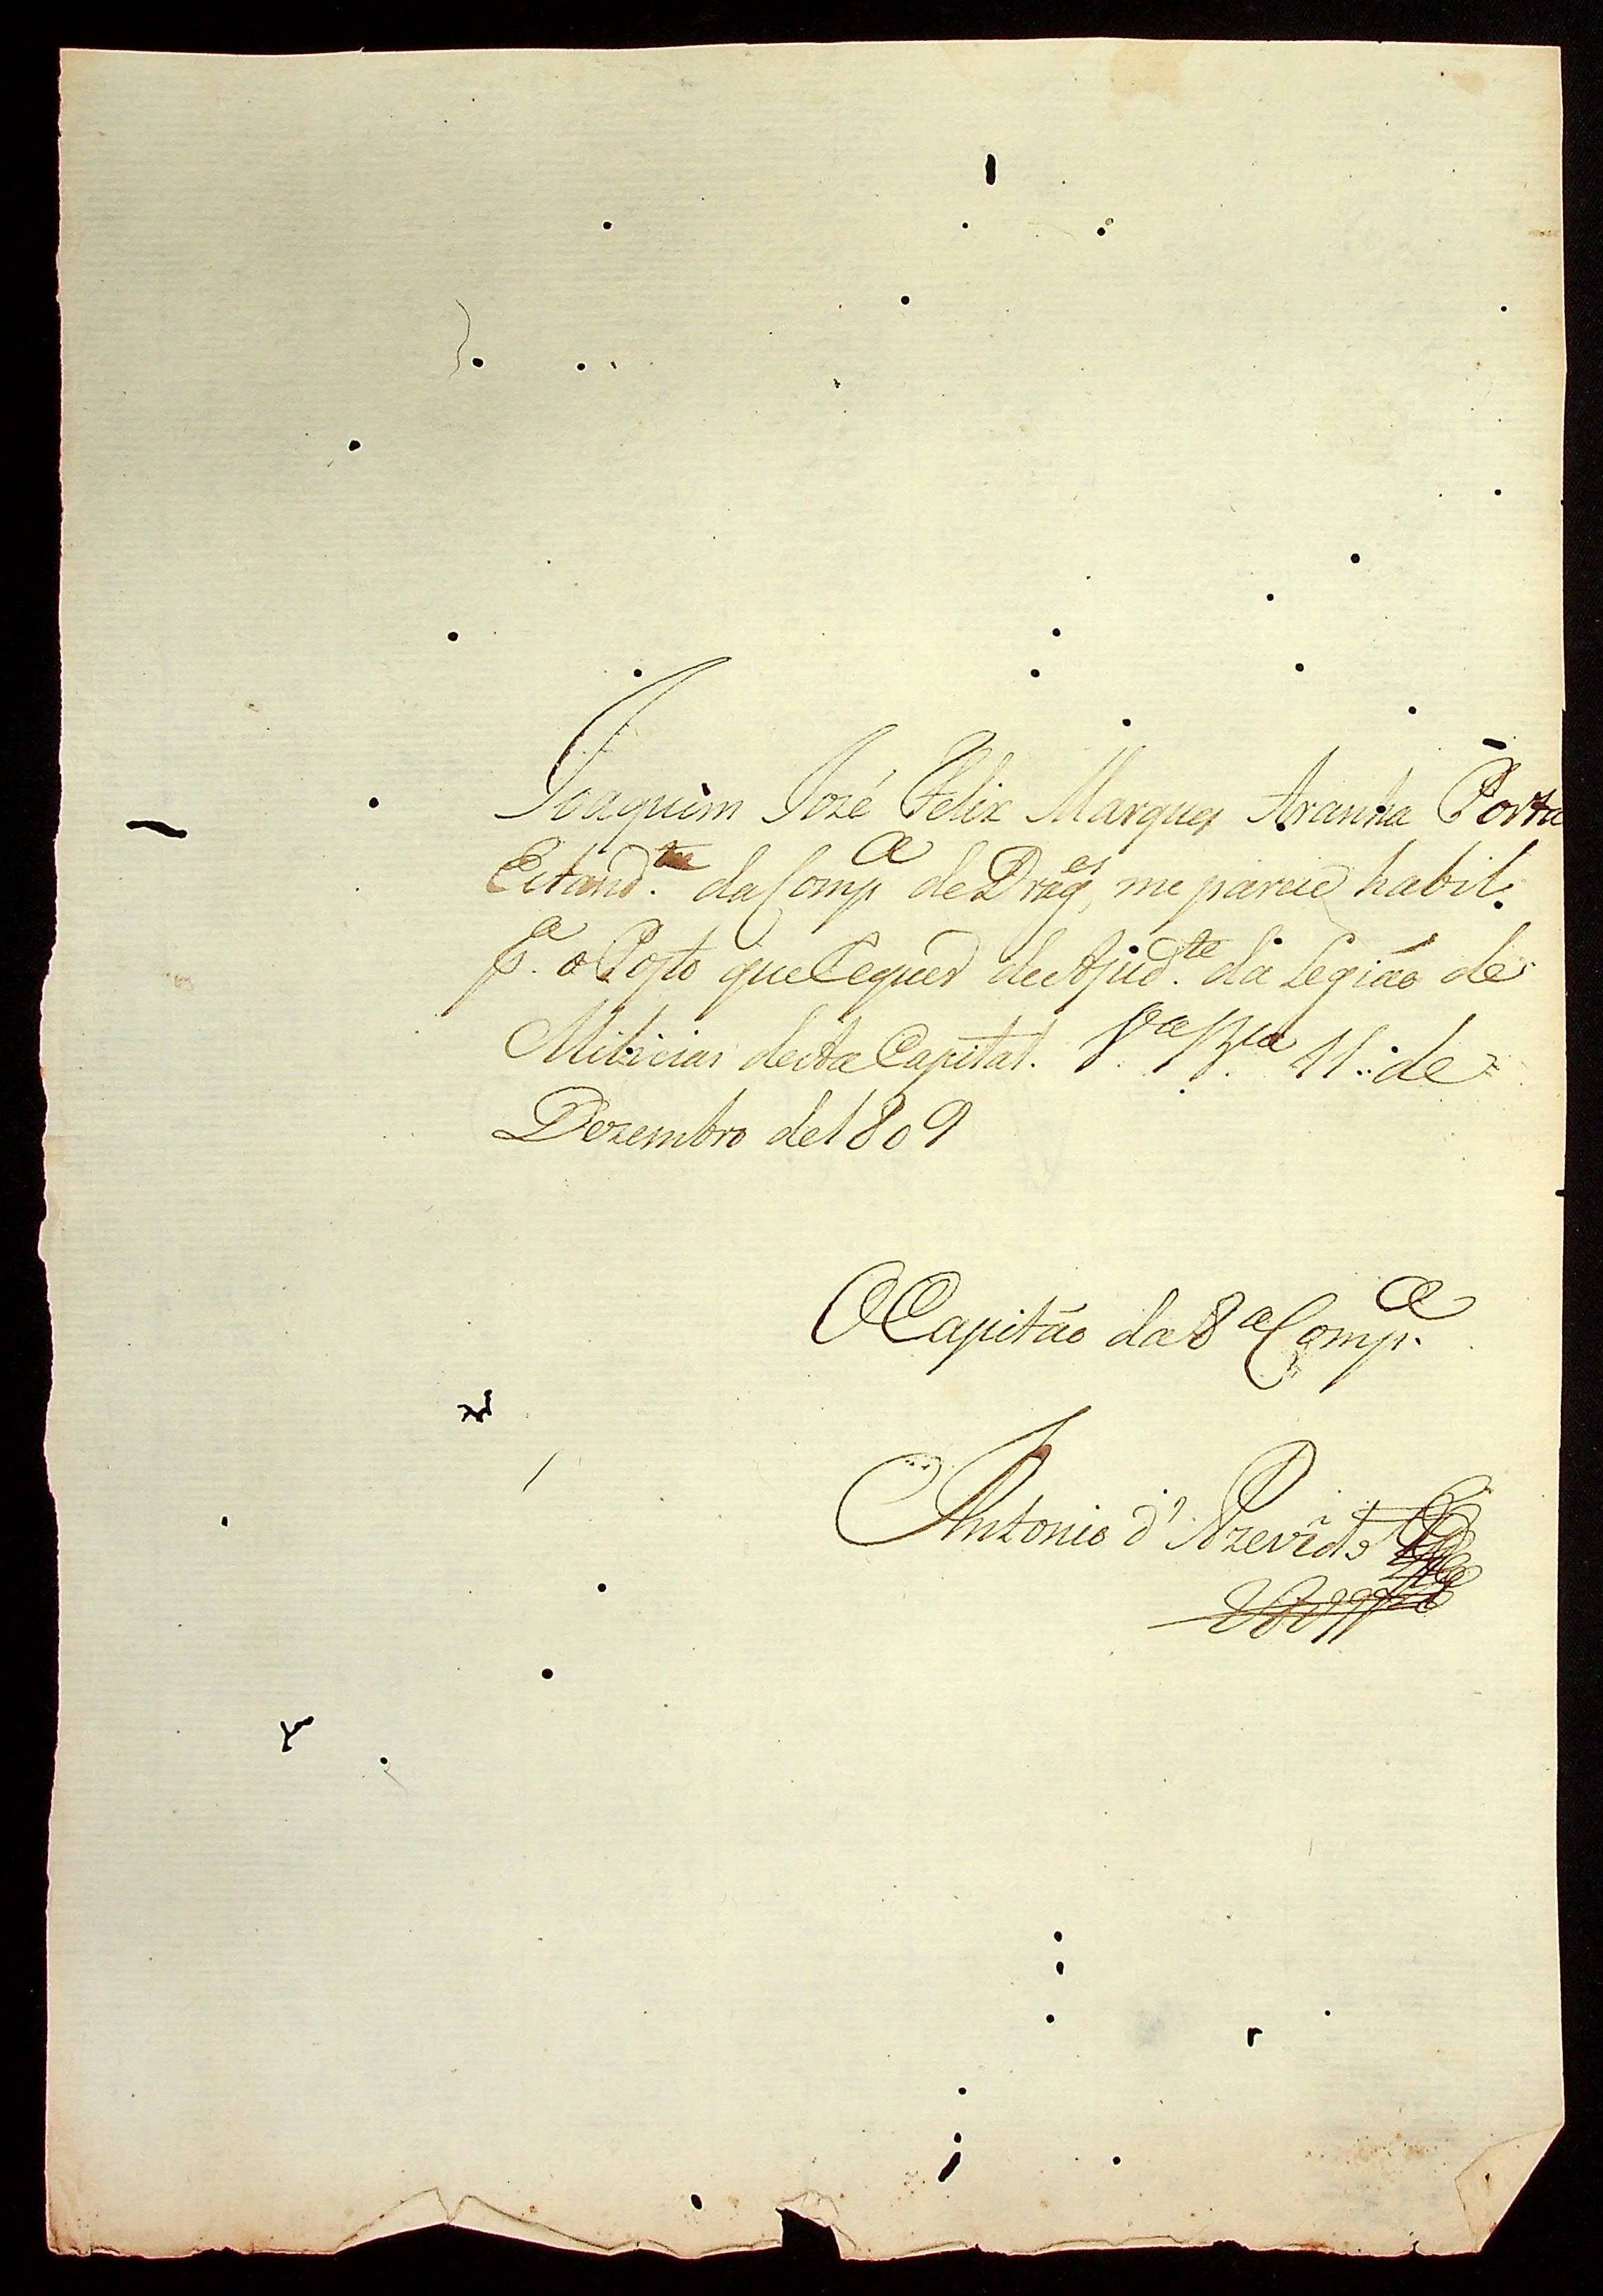 Joaquim José Felix Marques Aranha Porta
Estand.te da Comp.a de Drag.es, me parece habil
p.a o Posto que Requer de Ajud.te da Legião de
Milicias desta Capital. V.a B.a 11 de
Dezembro de 1809
O Capitão da 8.a Comp.a
Antonio d'Azevdo